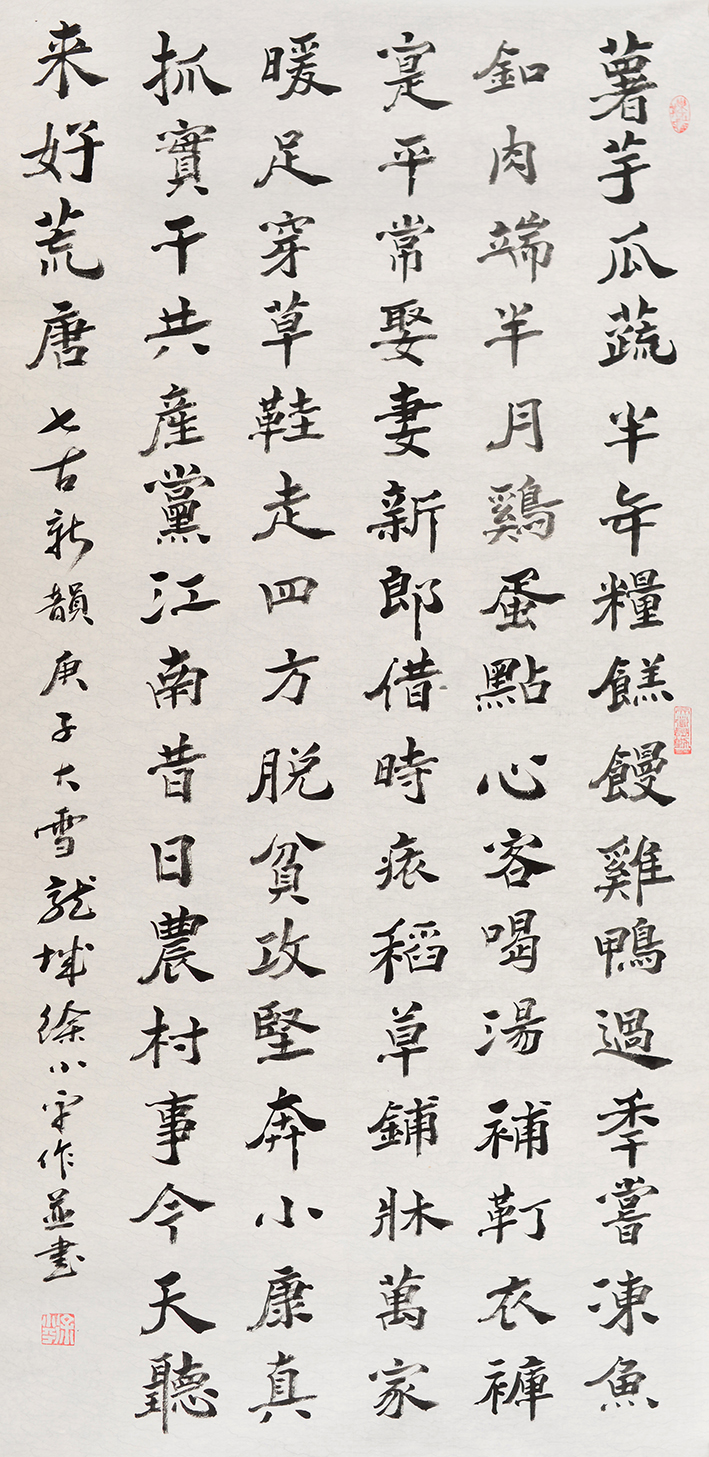 薯芋瓜蔬半年糧餻饅雞鴨過秊嘗凍魚
釦肉端半月鷄蛋點心客喝湯補靪衣褲
寔平常娶妻新郎借時稻草鋪牀萬家
暖足穿草鞋走四方脫貧攻堅奔小康真
抓實干共產黨江南昔日農村事今天聽
来好荒唐 七古新韻 庚子大雪龍城徐小平作並書